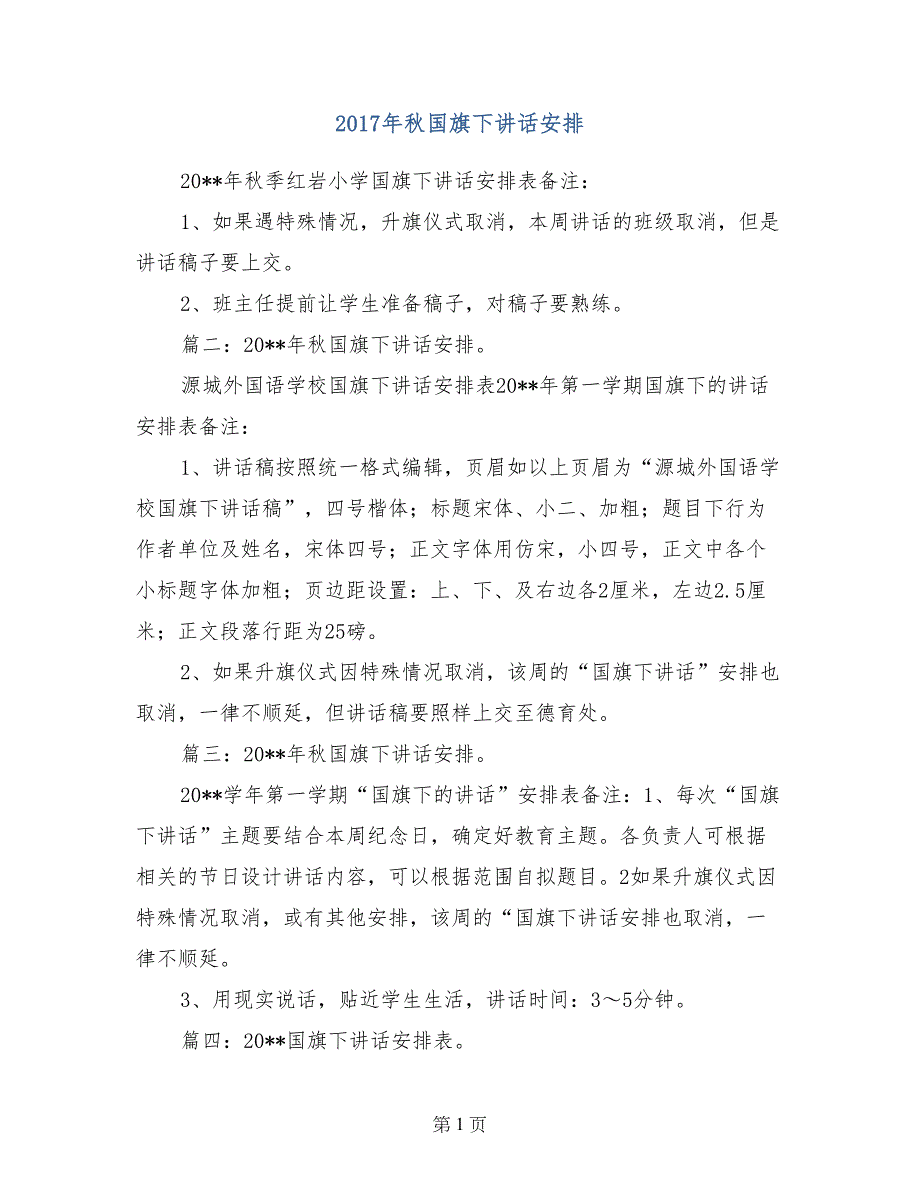 2017年秋国旗下讲话安排
20**年秋季红岩小学国旗下讲话安排表备注：
1、如果遇特殊情况，升旗仪式取消，本周讲话的班级取消，但是
讲话稿子要上交。
2、班主任提前让学生准备稿子，对稿子要熟练。
篇二：20**年秋国旗下讲话安排。
源城外国语学校国旗下讲话安排表20**年第一学期国旗下的讲话
安排表备注：
1、讲话稿按照统一格式编辑，页眉如以上页眉为“源城外国语学
校国旗下讲话稿”，四号楷体；标题宋体、小二、加粗；题目下行为
作者单位及姓名，宋体四号；正文字体用仿宋，小四号，正文中各个
小标题字体加粗；页边距设置：上、下、及右边各2厘米，左边2.5厘
米；正文段落行距为25磅。
2、如果升旗仪式因特殊情况取消，该周的“国旗下讲话”安排也
取消，一律不顺延，但讲话稿要照样上交至德育处。
篇三：20**年秋国旗下讲话安排。
20**学年第一学期“国旗下的讲话”安排表备注：1、每次“国旗
下讲话”主题要结合本周纪念日，确定好教育主题。各负责人可根据
相关的节日设计讲话内容，可以根据范围自拟题目。2如果升旗仪式因
特殊情况取消，或有其他安排，该周的“国旗下讲话安排也取消，一
律不顺延。
3、用现实说话，贴近学生生活，讲话时间：3～5分钟。
篇四：20**国旗下讲话安排表。
第 1 页